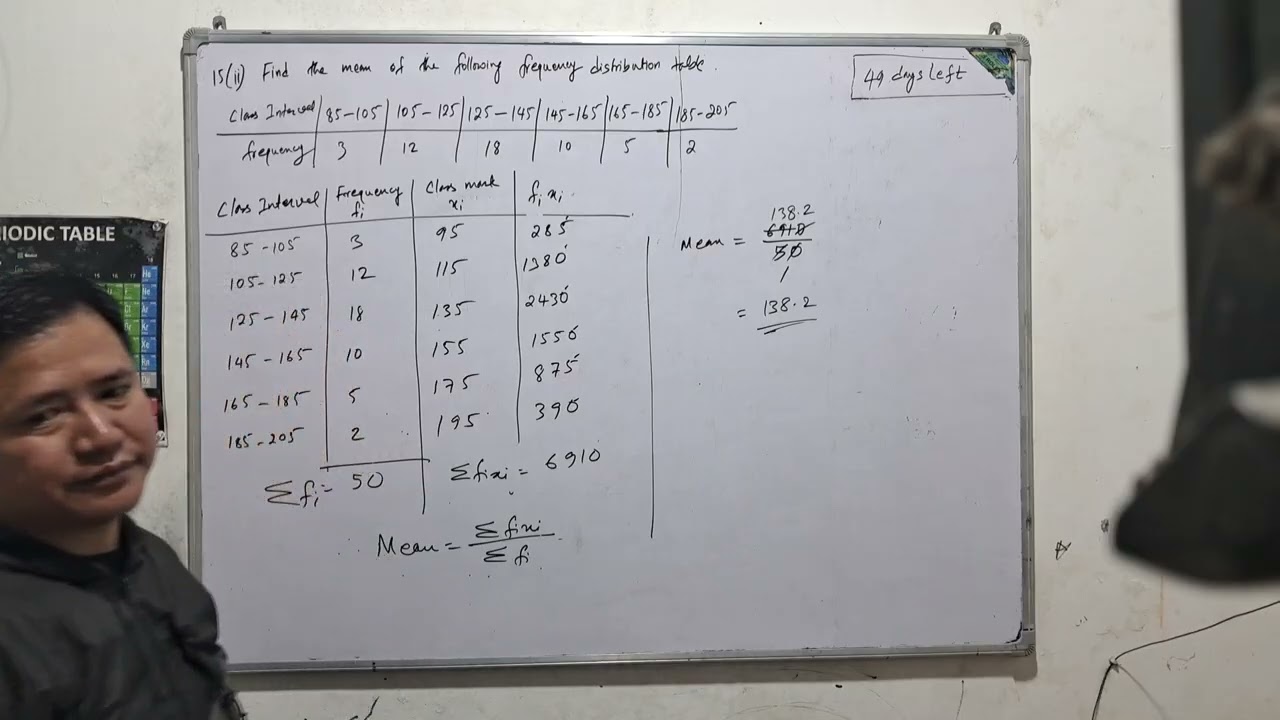 15(ii) Find the mean of the following frequency distribution table.
49 days left
Class Interval 85-105 105-125 125-145 145-165 165-185 185-205
frequency 3 12 18 10 5 2
Class Interval Frequency fi Class mark xi fi xi
85-105 3 95 285
105-125 12 115 1380
125-145 18 135 2430
145-165 10 155 1550
165-185 5 175 875
185-205 2 195 390
Σfi = 50 Σfixi = 6910
∴ Mean = Σfixi / Σfi
138.2
Mean = 6910 / 50
1
= 138.2
IODIC TABLE
He
Ne
Ar
Kr